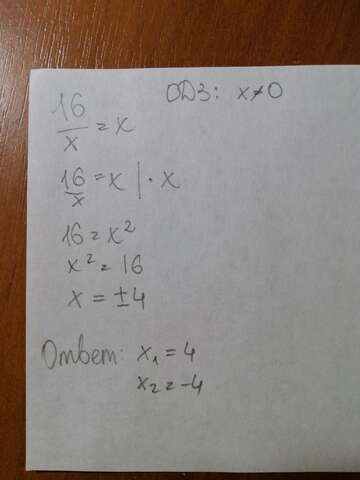 ОДЗ: x≠0
16/x = x
16/x = x | · x
16 = x²
x² = 16
x = ±4
Ответ: x₁ = 4
x₂ = -4